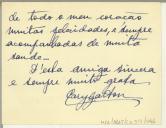 de todo o meu coração
muitas felicidades, e sempre
acompanhadas de muita
saude.
D'esta amiga sincera
e sempre muito grata